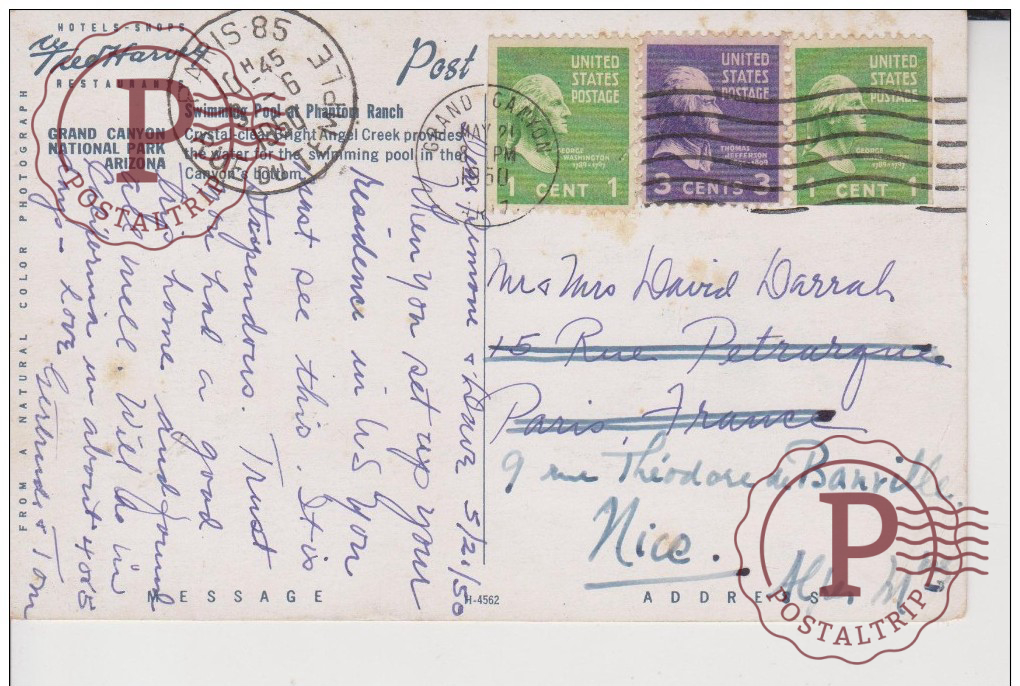 HOTELS-SHOPS
Fred Harvey
RESTAURANTS
GRAND CANYON
NATIONAL PARK
ARIZONA
Swimming Pool at Phantom Ranch
Crystal-clear Bright Angel Creek provides
the water for the swimming pool in the
Canyon's bottom.
Post
FROM A NATURAL COLOR PHOTOGRAPH
PARIS-85
45
-6
GRAND CANYON
MAY 21
PM
1950
UNITED
STATES
POSTAGE
GEORGE
WASHINGTON
1789-1797
1 CENT 1
UNITED
STATES
POSTAGE
THOMAS
JEFFERSON
3 CENTS 3
UNITED
STATES
POSTAGE
GEORGE
1789-1797
1 CENT 1
5/21/50
When you set up your
residence in US you
must see this. It is
stupendous. Trust
you had a good
trip home and found
all well. Will be in
California in about 4 or 5
days - Love
Gertrude & Tom
Mr & Mrs David Darrah
15 Rue Petrarque
Paris, France
9 rue Théodore de Banville
Nice.
MESSAGE
H-4562
ADDRESS
P
POSTALTRIP
P
POSTALTRIP